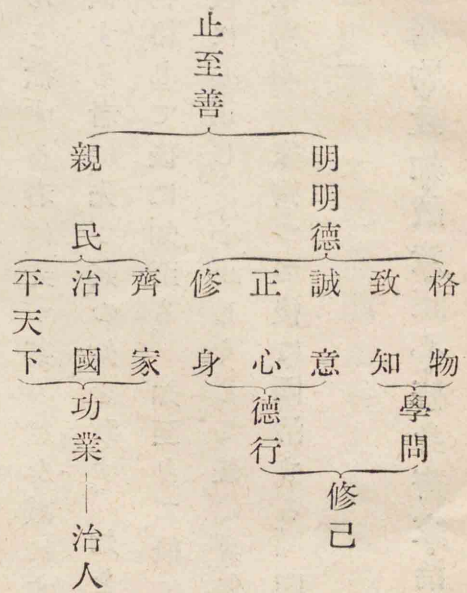 止至善
明明德
親民
格物
致知
誠意
正心
修身
齊家
治國
平天下
學問
德行
功業——治人
修己